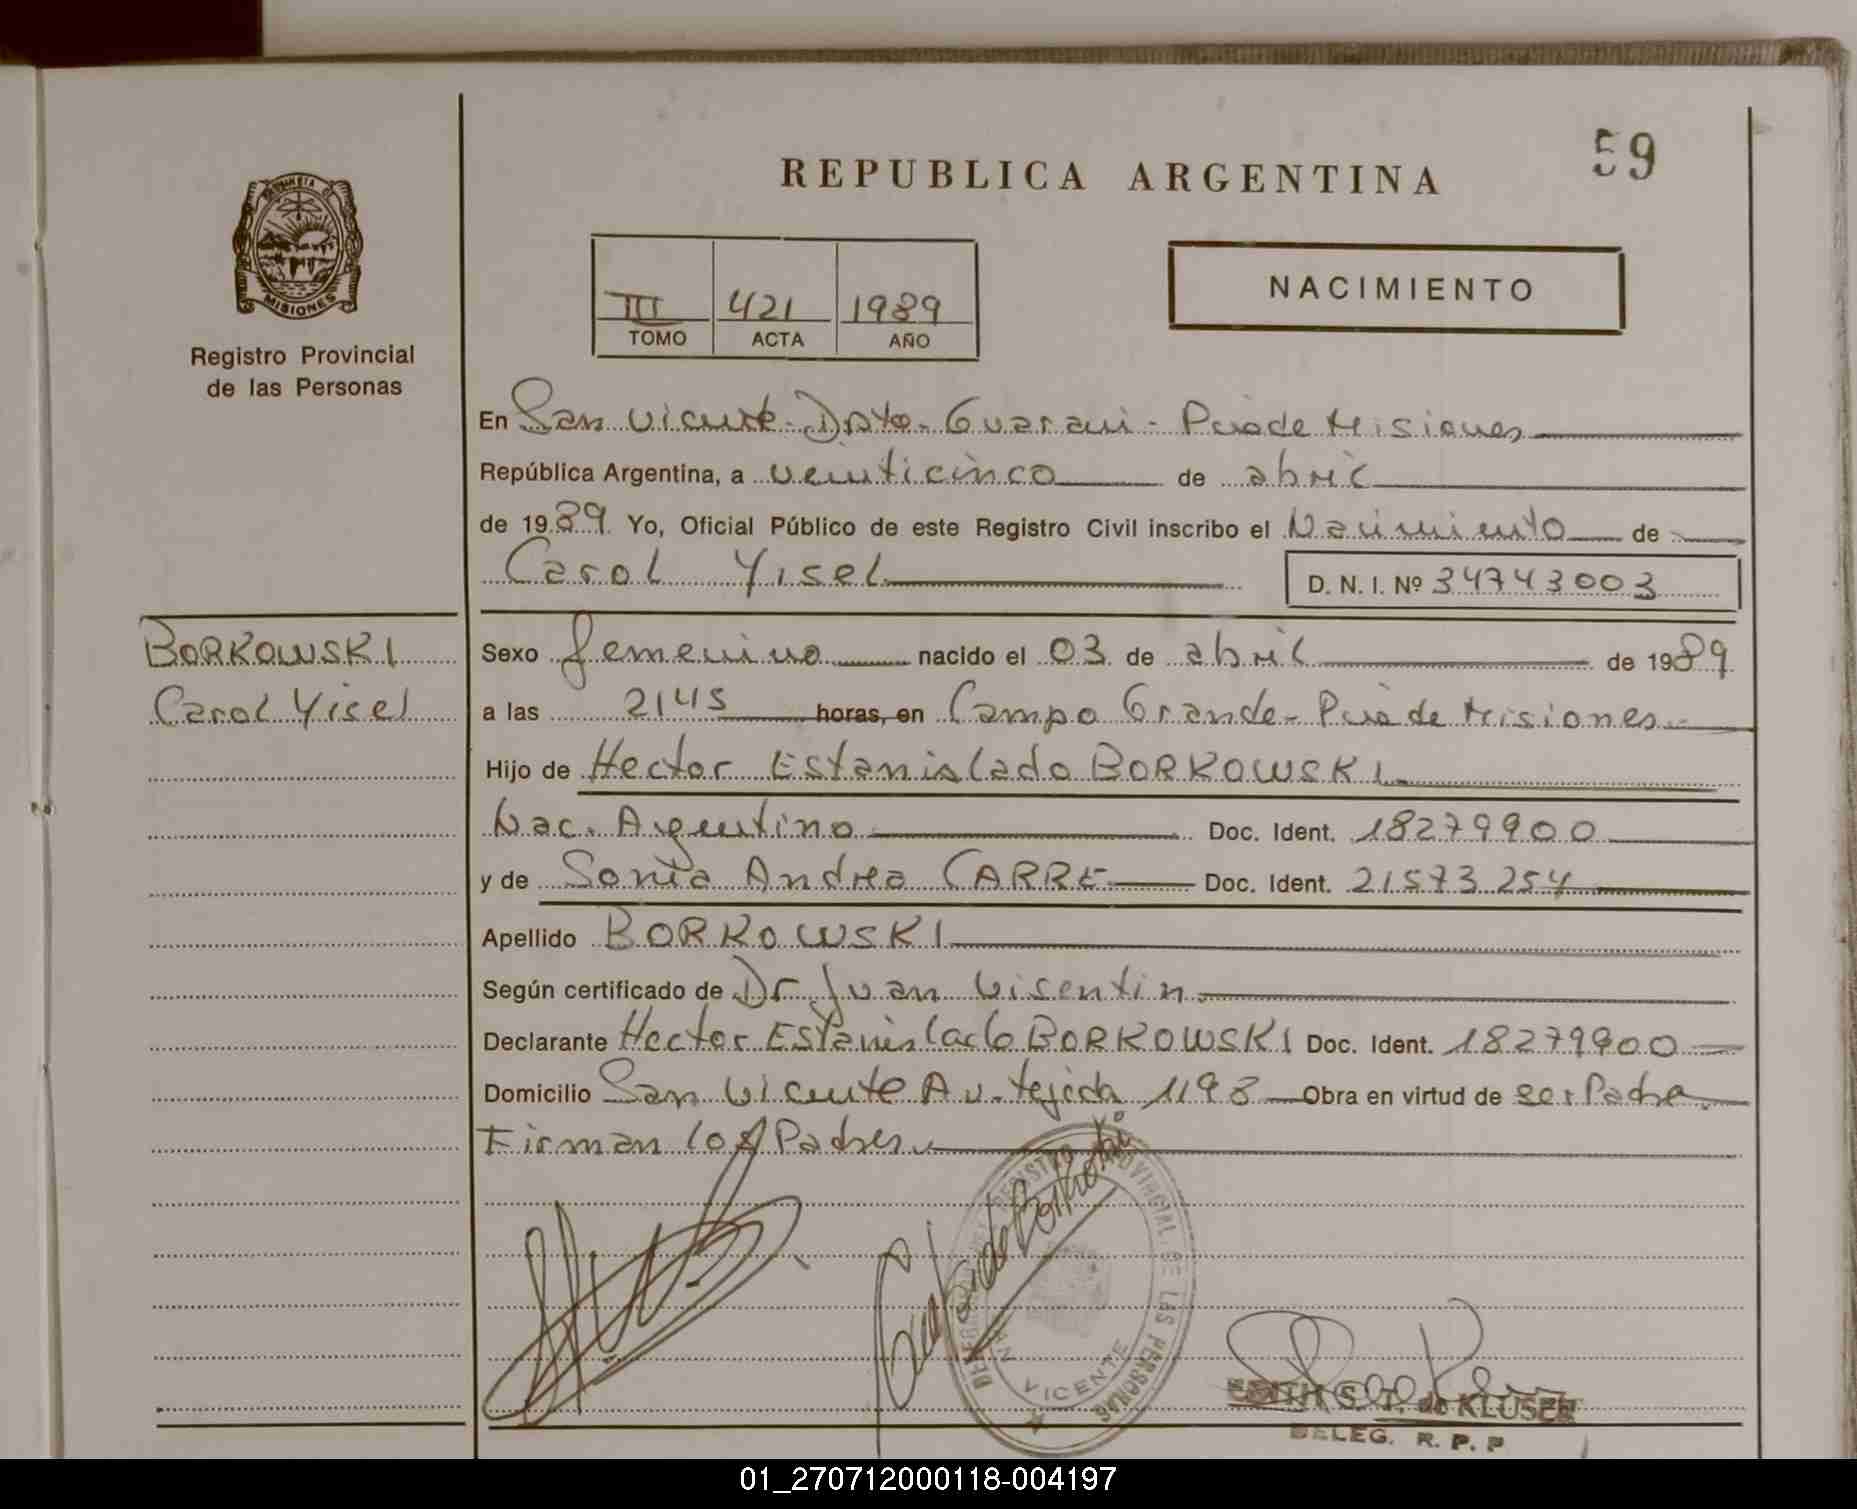 59
REPUBLICA ARGENTINA
MISIONES
III 421 1989
TOMO ACTA AÑO
NACIMIENTO
Registro Provincial
de las Personas
En San Vicente - Dpto. Guarani - Pcia de Misiones
República Argentina, a veinticinco de abril
de 1989. Yo, Oficial Público de este Registro Civil inscribo el Nacimiento de
Carol Yisel D. N. I. Nº 34743003
BORKOWSKI
Carol Yisel
Sexo femenino nacido el 03 de abril de 1989
a las 2145 horas, en Campo Grande - Pcia de Misiones
Hijo de Hector Estanislado BORKOWSKI
Nac. Argentino Doc. Ident. 18279900
y de Sonia Andrea CARRE Doc. Ident. 21573254
Apellido BORKOWSKI
Según certificado de Dr Juan Visentin
Declarante Hector Estanislado BORKOWSKI Doc. Ident. 18279900
Domicilio San Vicente Av. tejeda 1198 Obra en virtud de ser Padre.
Firman los Padres
REGISTRO PROVINCIAL DE LAS PERSONAS
SAN VICENTE
EDITH S. T. de KLUSER
DELEG. R. P. P
01_270712000118-004197